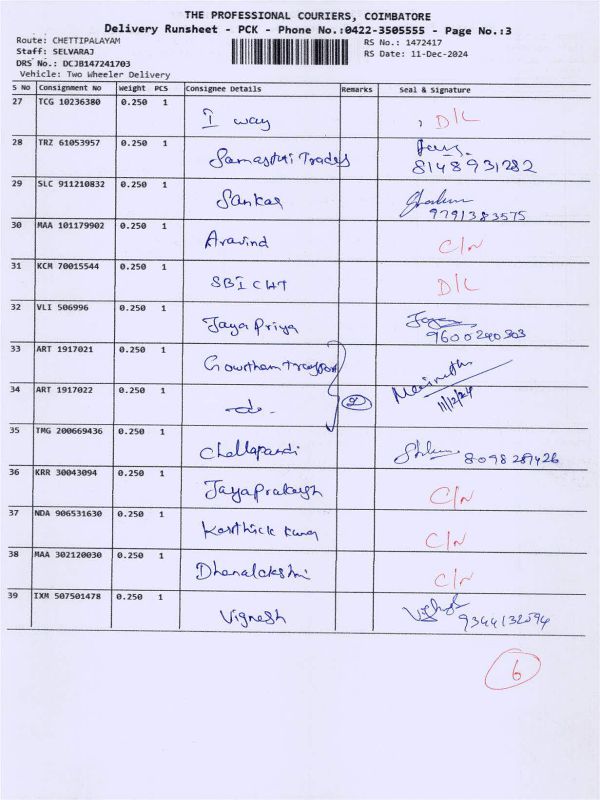 THE PROFESSIONAL COURIERS, COIMBATORE
Delivery Runsheet - PCK - Phone No.:0422-3505555 - Page No.:3
Route: CHETTIPALAYAM RS No.: 1472417
Staff: SELVARAJ RS Date: 11-Dec-2024
DRS No.: DCJB147241703
Vehicle: Two Wheeler Delivery
S No Consignment No Weight PCS Consignee Details Remarks Seal & Signature
27 TCG 10236380 0.250 1 I way D/L
28 TRZ 61053957 0.250 1 Samasthi Trades 8148931282
29 SLC 911210832 0.250 1 Sankar 9791383575
30 MAA 101179902 0.250 1 Aravind C/N
31 KCM 70015544 0.250 1 SBI CHT D/L
32 VLI 506996 0.250 1 Jaya Priya 9600240303
33 ART 1917021 0.250 1 Gowtham
34 ART 1917022 0.250 1 -do- 2 11/12/24
35 TMG 200669436 0.250 1 Chellapandi 8098287426
36 KRR 30043094 0.250 1 Jayaprakash C/N
37 NDA 906531630 0.250 1 Karthick Kumar C/N
38 MAA 302120030 0.250 1 Dhanalakshmi C/N
39 IXM 507501478 0.250 1 Vignesh 9344132594
6